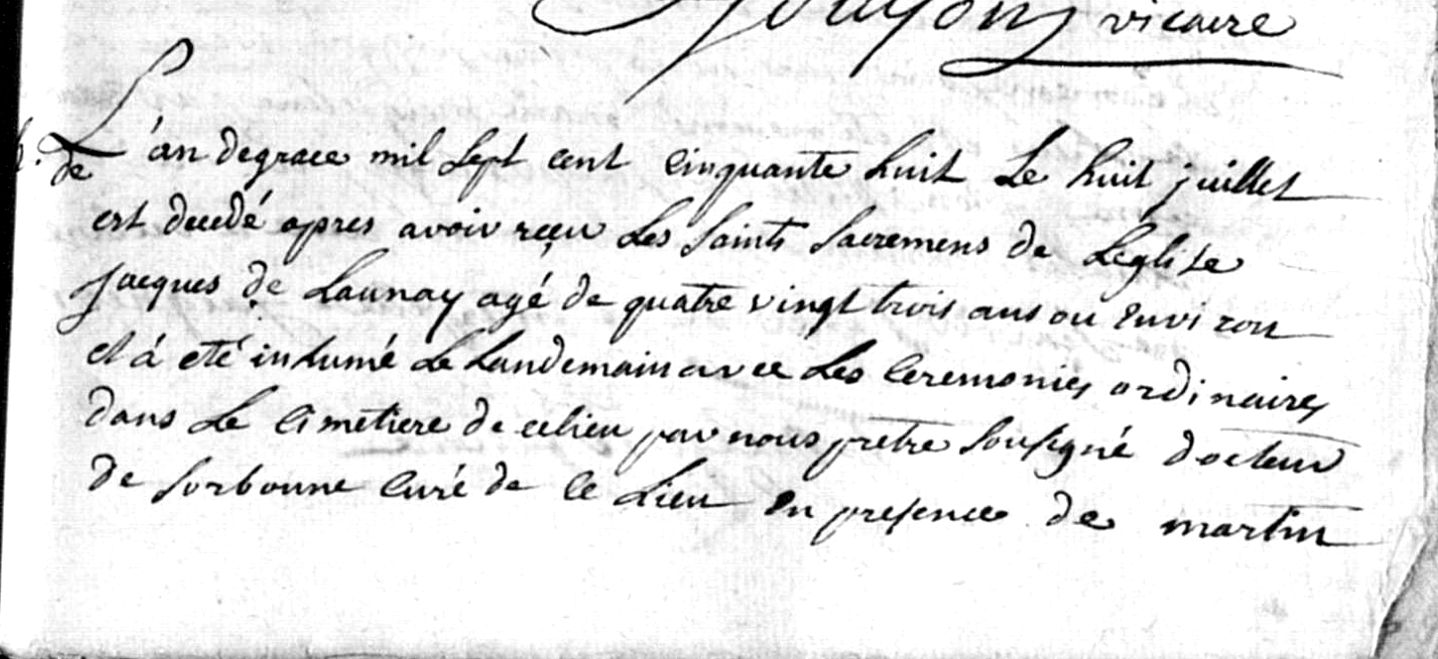 vicaire
de
L'an de grace mil sept cent cinquante huit Le huit juillet
est decedé apres avoir reçu Les saints sacremens de Leglise
jacques de Launay agé de quatre vingt trois ans ou environ
et á eté inhumé Le Landemain avec Les ceremonies ordinaires
dans Le cimetiere de ce lieu par nous pretre soussigné docteur
de sorbonne curé de ce Lieu en presence de martin